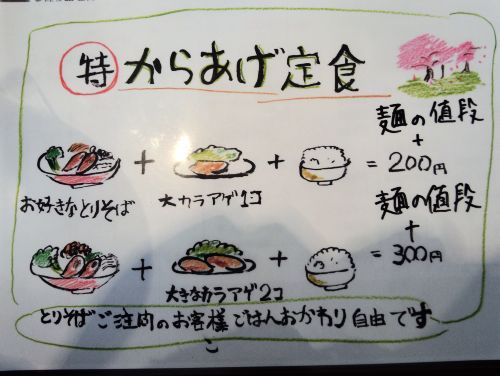 特 からあげ定食
麺の値段
+
お好きなとりそば + 大カラアゲ1コ + = 200円
麺の値段
+
+ 大きなカラアゲ2コ + = 300円
とりそばご注肉のお客様ごはんおかわり自由です
こ